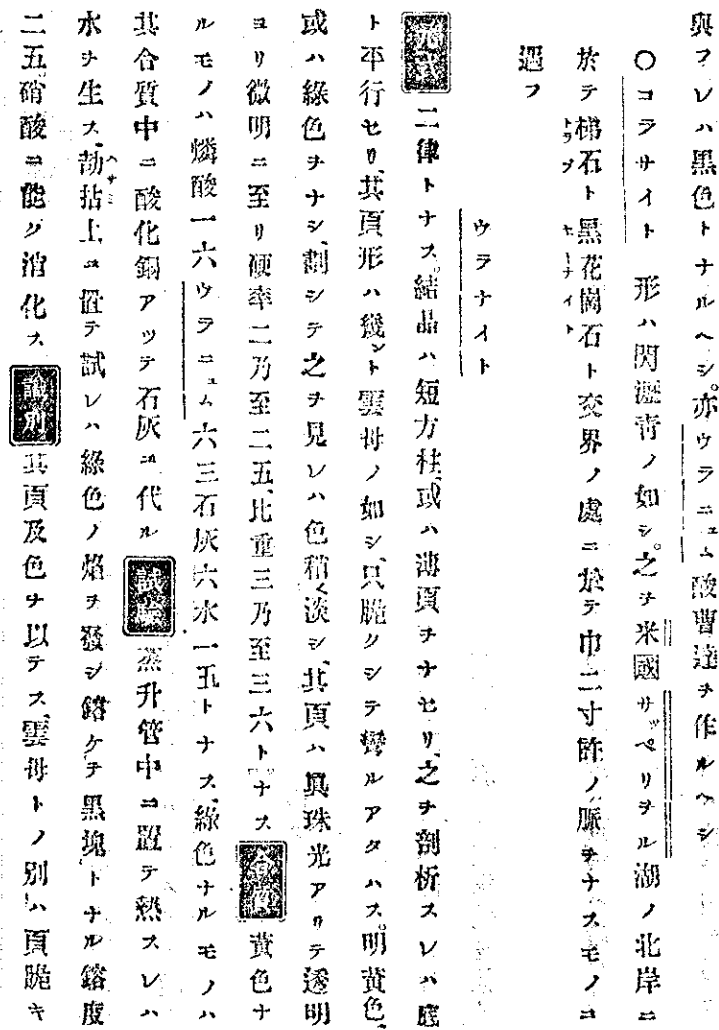 與フレハ黒色トナルヘシ。亦ウラニュム酸曹達ヲ作ルヘシ
〇コラサイト 形ハ閃瀝青ノ如シ。之ヲ米國サッペリヲル湖ノ北岸ニ
於テ梯石トラップト黒花崗石セーナイトト交界ノ處ニ於テ巾二寸許ノ脈ヲナスモノニ
遇フ
ウラナイト
二律トナス。結晶ハ短方柱、或ハ薄頁ヲナセリ、之ヲ剖析スレハ底
ト平行セリ、其頁形ハ幾ント雲母ノ如シ、只脆クシテ彎ルアタハス。明黄色、
或ハ綠色ヲナシ、劃シテ之ヲ見レハ色稍淡シ、其頁ハ眞珠光アリテ透明
ヨリ微明ニ至リ硬率二乃至二五、比重三乃至三六トナス 合質 黄色ナ
ルモノハ燐酸一六ウラニュム六三石灰六水一五トナス、綠色ナルモノハ
其合質中ニ酸化銅アッテ石灰ニ代ル 試 蒸升管中ニ置テ熱スレハ
水ヲ生ス、上ニ置テ試レハ綠色ノ焰ヲ發シ鎔ケテ黒塊トナル鎔度
二五。硝酸ニ能ク消化ス 別 其頁及色ヲ以テス、雲母トノ別ハ頁脆キ